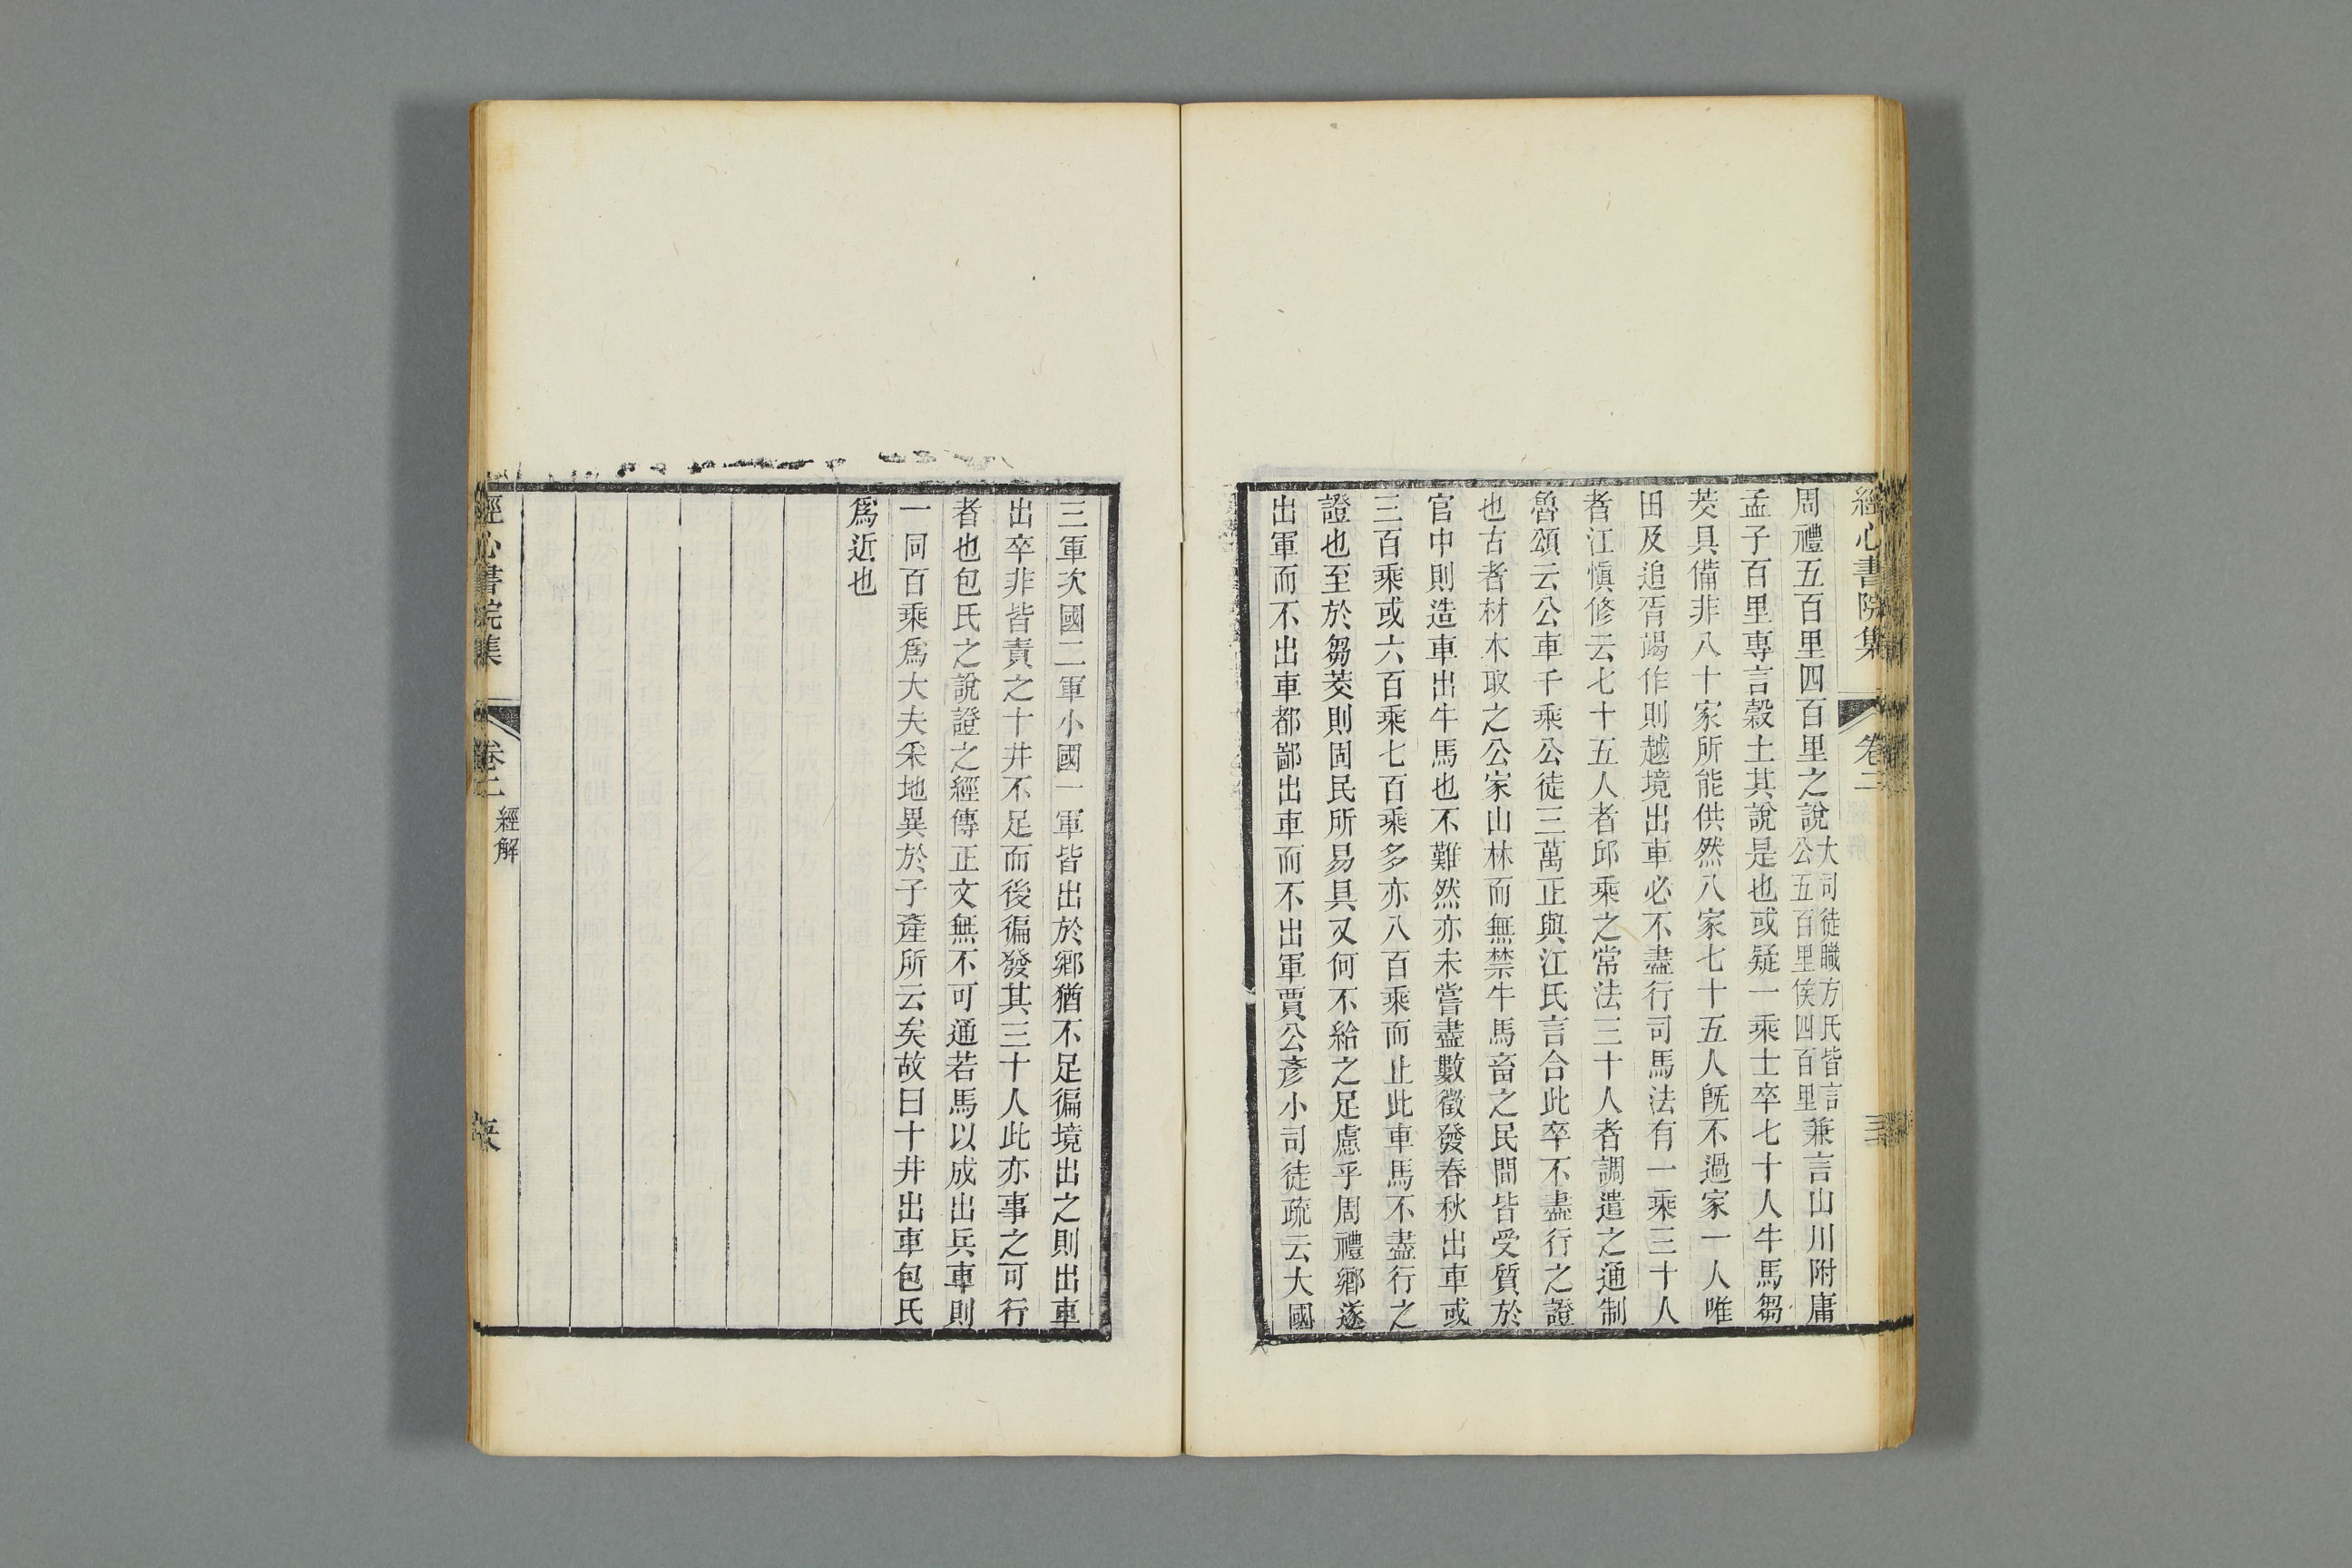 經心書院集 卷二 三
周禮五百里四百里之說大司徒職方氏皆言公五百里侯四百里兼言山川附庸
孟子百里專言穀土其說是也或疑一乘士卒七十人牛馬芻
茭具備非八十家所能供然八家七十五人既不過家一人唯
田及追胥竭作則越境出車必不盡行司馬法有一乘三十人
者江慎修云七十五人者邱乘之常法三十人者調遣之通制
魯頌云公車千乘公徒三萬正與江氏言合此卒不盡行之證
也古者材木取之公家山林而無禁牛馬畜之民間皆受質於
官中則造車出牛馬也不難然亦未嘗盡數徵發春秋出車或
三百乘或六百乘七百乘多亦八百乘而止此車馬不盡行之
證也至於芻茭則固民所易具又何不給之足慮乎周禮鄉遂
出軍而不出車都鄙出車而不出軍賈公彥小司徒疏云大國
三軍次國二軍小國一軍皆出於鄉猶不足徧境出之則出車
出卒非皆責之十井不足而後徧發其三十人此亦事之可行
者也包氏之說證之經傳正文無不可通若馬以成出兵車則
一同百乘爲大夫采地異於子產所云矣故曰十井出車包氏
爲近也
經心書院集 卷二 經解